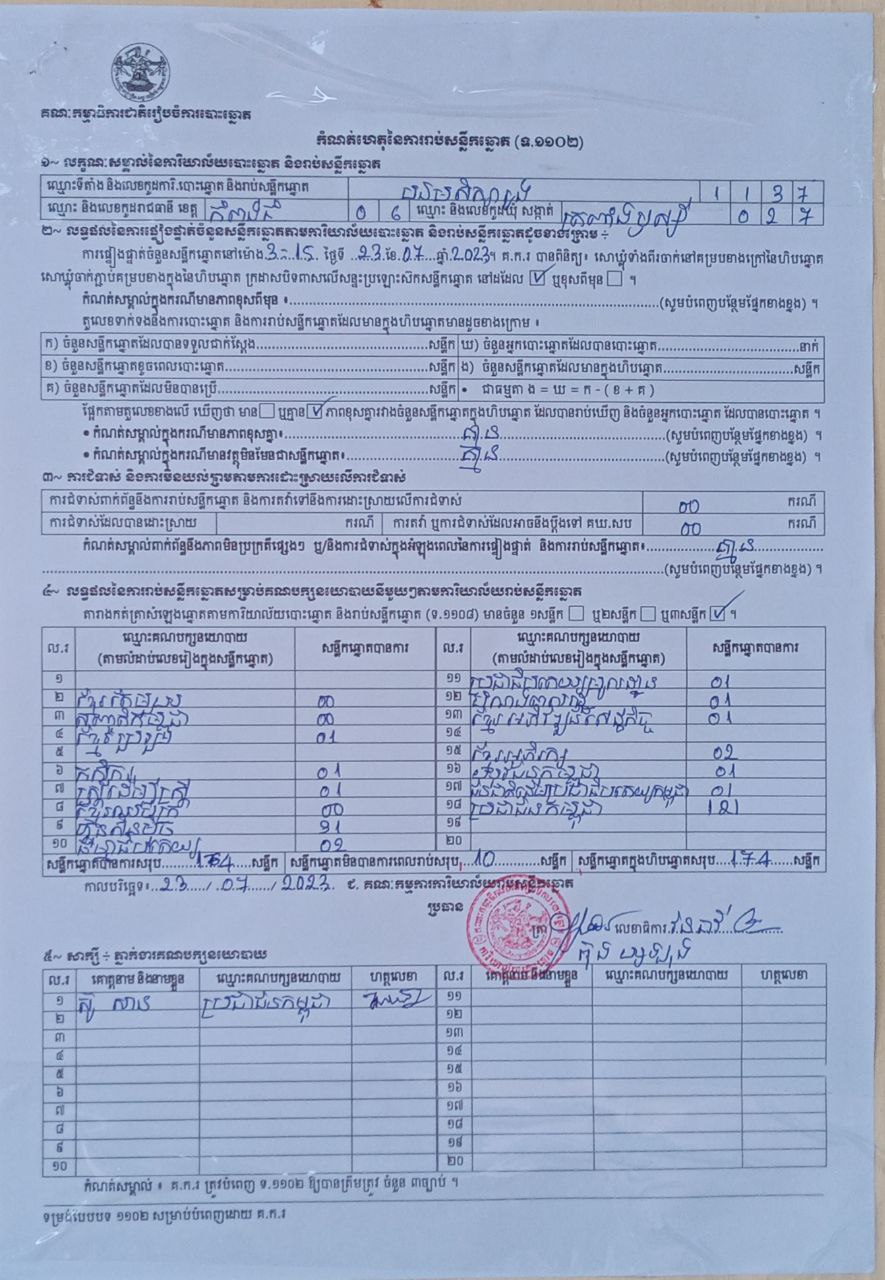 គណៈកម្មាធិការជាតិរៀបចំការបោះឆ្នោត
កំណត់ហេតុនៃការរាប់សន្លឹកឆ្នោត (ទ.១១០២)
១~ លក្ខណៈសម្គាល់នៃការិយាល័យបោះឆ្នោត និងរាប់សន្លឹកឆ្នោត
ឈ្មោះទីតាំង និងលេខកូដការិ.បោះឆ្នោត និងរាប់សន្លឹកឆ្នោត 1 1 3 7
ឈ្មោះ និងលេខកូដរាជធានី ខេត្ត កំពង់ធំ 0 6 ឈ្មោះ និងលេខកូដឃុំ សង្កាត់ 0 2 7
២~ លទ្ធផលនៃការផ្ទៀងផ្ទាត់ចំនួនសន្លឹកឆ្នោតតាមការិយាល័យបោះឆ្នោត និងរាប់សន្លឹកឆ្នោតដូចខាងក្រោម ÷
ការផ្ទៀងផ្ទាត់ចំនួនសន្លឹកឆ្នោតនៅម៉ោង 3-15 ថ្ងៃទី 23 ខែ 07 ឆ្នាំ 2023។ គ.ក.រ បានពិនិត្យ៖ សោឃ្លុំទាំងពីរចាក់នៅគម្របខាងក្រៅនៃហិបឆ្នោត
សោឃ្លុំចាក់ភ្ជាប់គម្របខាងក្នុងនៃហិបឆ្នោត ក្រដាសបិទពាសលើសន្ទះប្រឡោះសិកសន្លឹកឆ្នោត នៅដដែល ☑ ឬខុសពីមុន ☐ ។
កំណត់សម្គាល់ក្នុងករណីមានភាពខុសពីមុន ៖ (សូមបំពេញបន្ថែមផ្នែកខាងខ្នង) ។
តួលេខទាក់ទងនឹងការបោះឆ្នោត និងការរាប់សន្លឹកឆ្នោតដែលមានក្នុងហិបឆ្នោតមានដូចខាងក្រោម ៖
ក) ចំនួនសន្លឹកឆ្នោតដែលបានទទួលជាក់ស្តែង សន្លឹក ឃ) ចំនួនអ្នកបោះឆ្នោតដែលបានបោះឆ្នោត នាក់
ខ) ចំនួនសន្លឹកឆ្នោតខូចពេលបោះឆ្នោត សន្លឹក ង) ចំនួនសន្លឹកឆ្នោតដែលមានក្នុងហិបឆ្នោត សន្លឹក
គ) ចំនួនសន្លឹកឆ្នោតដែលមិនបានប្រើ សន្លឹក • ជាធម្មតា ង = ឃ = ក - ( ខ + គ )
ផ្អែកតាមតួលេខខាងលើ ឃើញថា មាន ☐ ឬគ្មាន ☑ ភាពខុសគ្នារវាងចំនួនសន្លឹកឆ្នោតក្នុងហិបឆ្នោត ដែលបានរាប់ឃើញ និងចំនួនអ្នកបោះឆ្នោត ដែលបានបោះឆ្នោត ។
• កំណត់សម្គាល់ក្នុងករណីមានភាពខុសគ្នា៖ គ្មាន (សូមបំពេញបន្ថែមផ្នែកខាងខ្នង) ។
• កំណត់សម្គាល់ក្នុងករណីមានវត្ថុមិនមែនជាសន្លឹកឆ្នោត៖ គ្មាន (សូមបំពេញបន្ថែមផ្នែកខាងខ្នង) ។
៣~ ការជំទាស់ និងការមិនយល់ព្រមតាមការដោះស្រាយលើការជំទាស់
ការជំទាស់ពាក់ព័ន្ធនឹងការរាប់សន្លឹកឆ្នោត និងការតវ៉ាទៅនឹងការដោះស្រាយលើការជំទាស់ 00 ករណី
ការជំទាស់ដែលបានដោះស្រាយ ករណី ការតវ៉ា ឬការជំទាស់ដែលអាចនឹងប្តឹងទៅ គឃ.សប 00 ករណី
កំណត់សម្គាល់ពាក់ព័ន្ធនឹងភាពមិនប្រក្រតីផ្សេងៗ ឬ/និងការជំទាស់ក្នុងអំឡុងពេលនៃការផ្ទៀងផ្ទាត់ និងការរាប់សន្លឹកឆ្នោត៖ គ្មាន
(សូមបំពេញបន្ថែមផ្នែកខាងខ្នង) ។
៤~ លទ្ធផលនៃការរាប់សន្លឹកឆ្នោតសម្រាប់គណបក្សនយោបាយនីមួយៗតាមការិយាល័យរាប់សន្លឹកឆ្នោត
តារាងកត់ត្រាសំឡេងឆ្នោតតាមការិយាល័យបោះឆ្នោត និងរាប់សន្លឹកឆ្នោត (ទ.១១០៨) មានចំនួន ១សន្លឹក ☐ ឬ២សន្លឹក ☐ ឬ៣សន្លឹក ☑ ។
ល.រ ឈ្មោះគណបក្សនយោបាយ (តាមលំដាប់លេខរៀងក្នុងសន្លឹកឆ្នោត) សន្លឹកឆ្នោតបានការ ល.រ ឈ្មោះគណបក្សនយោបាយ (តាមលំដាប់លេខរៀងក្នុងសន្លឹកឆ្នោត) សន្លឹកឆ្នោតបានការ
១ ១១ 01
២ ខ្មែរតែមួយ 00 ១២ 01
៣ 00 ១៣ 01
៤ 01 ១៤
៥ ១៥ 02
៦ កសិករ 01 ១៦ 01
៧ ស្ត្រីដើម្បីស្ត្រី 01 ១៧ 01
៨ 00 ១៨ ប្រជាជនកម្ពុជា 121
៩ ហ្វ៊ុនស៊ិនប៉ិច ១៩
១០ 02 ២០
សន្លឹកឆ្នោតបានការសរុប 164 សន្លឹក សន្លឹកឆ្នោតមិនបានការពេលរាប់សរុប 10 សន្លឹក សន្លឹកឆ្នោតក្នុងហិបឆ្នោតសរុប 174 សន្លឹក
កាលបរិច្ឆេទ៖ 23 / 07 / 2023 ជ. គណៈកម្មការការិយាល័យរាប់សន្លឹកឆ្នោត
ប្រធាន
ត្រា លេខាធិការ
៥~ សាក្សី ÷ ភ្នាក់ងារគណបក្សនយោបាយ
ល.រ គោត្តនាម និងនាមខ្លួន ឈ្មោះគណបក្សនយោបាយ ហត្ថលេខា ល.រ គោត្តនាម និងនាមខ្លួន ឈ្មោះគណបក្សនយោបាយ ហត្ថលេខា
១ ស៊ូ សាន ប្រជាជនកម្ពុជា ១១
២ ១២
៣ ១៣
៤ ១៤
៥ ១៥
៦ ១៦
៧ ១៧
៨ ១៨
៩ ១៩
១០ ២០
កំណត់សម្គាល់ ៖ គ.ក.រ ត្រូវបំពេញ ទ.១១០២ ឱ្យបានត្រឹមត្រូវ ចំនួន ៣ច្បាប់ ។
ទម្រង់បែបបទ ១១០២ សម្រាប់បំពេញដោយ គ.ក.រ